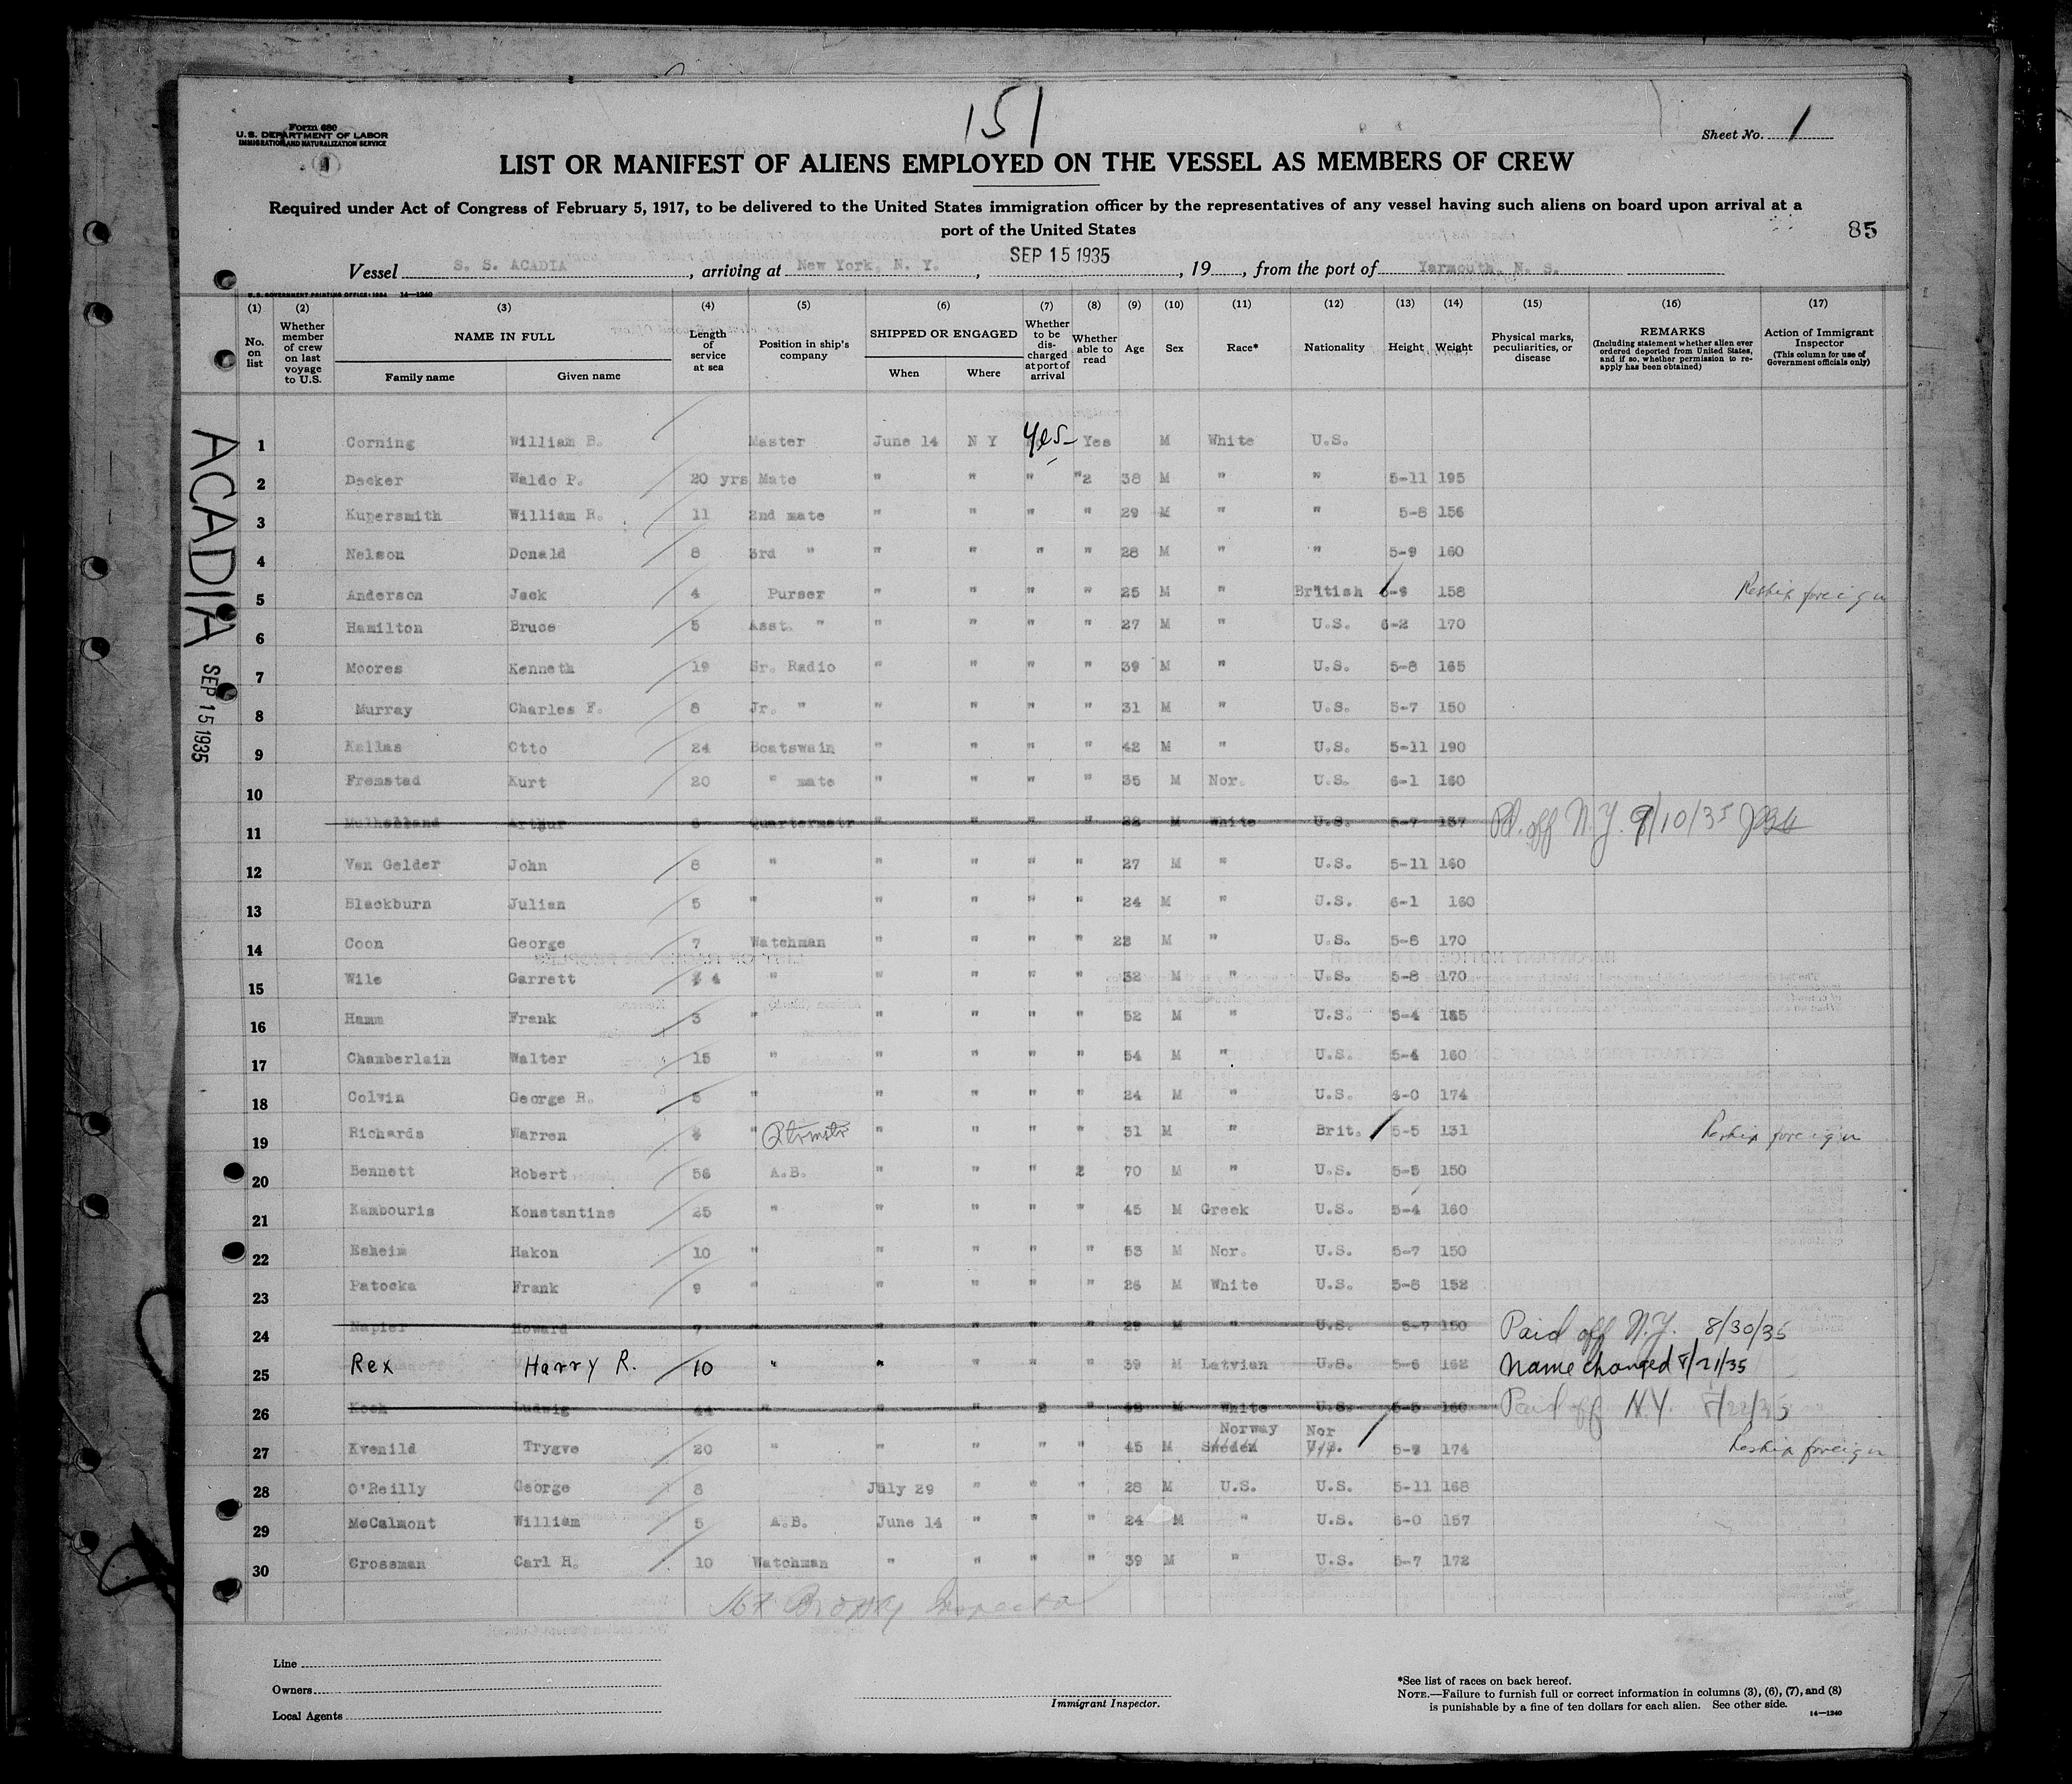 151
Form 680
U.S. DEPARTMENT OF LABOR
IMMIGRATION AND NATURALIZATION SERVICE
Sheet No. 1
LIST OR MANIFEST OF ALIENS EMPLOYED ON THE VESSEL AS MEMBERS OF CREW
Required under Act of Congress of February 5, 1917, to be delivered to the United States immigration officer by the representatives of any vessel having such aliens on board upon arrival at a
port of the United States
85
Vessel S. S. ACADIA, arriving at New York, N. Y., SEP 15 1935, 19, from the port of Yarmouth, N. S.
U.S. GOVERNMENT PRINTING OFFICE: 1934 14—1240
(1) (2) (3) (4) (5) (6) (7) (8) (9) (10) (11) (12) (13) (14) (15) (16) (17)
No. on list Whether member of crew on last voyage to U.S. NAME IN FULL Family name Given name Length of service at sea Position in ship's company SHIPPED OR ENGAGED When Where Whether to be discharged at port of arrival Whether able to read Age Sex Race* Nationality Height Weight Physical marks, peculiarities, or disease REMARKS (Including statement whether alien ever ordered deported from United States, and if so, whether permission to reapply has been obtained) Action of Immigrant Inspector (This column for use of Government officials only)
ACADIA SEP 15 1935
1 Corning William B. Master June 14 N Y Yes Yes M White U.S.
2 Decker Waldo P. 20 yrs Mate " " " "2 38 M " " 5-11 195
3 Kupersmith William R. 11 2nd mate " " " " 29 M " " 5-8 156
4 Nelson Donald 8 3rd " " " " " 28 M " " 5-9 160
5 Anderson Jack 4 Purser " " " " 25 M " British 158 Reship foreign
6 Hamilton Bruce 5 Asst. " " " " " 27 M " U.S. 6-2 170
7 Moores Kenneth 19 Sr. Radio " " " " 39 M " U.S. 5-8 165
8 Murray Charles F. 8 Jr. " " " " " 31 M " U.S. 5-7 150
9 Kallas Otto 24 Boatswain " " " " 42 M " U.S. 5-11 190
10 Fremstad Kurt 20 " mate " " " " 35 M Nor. U.S. 6-1 160
11 Mulholland Arthur Quartermstr " " " " M White U.S. 5-7 157 Pd. off N.Y. 9/10/35
12 Van Gelder John 8 " " " " " 27 M " U.S. 5-11 160
13 Blackburn Julian 5 " " " " " 24 M " U.S. 6-1 160
14 Coon George 7 Watchman " " " " 22 M " U.S. 5-8 170
15 Wile Garrett 4 " " " " " 32 M " U.S. 5-8 170
16 Hamm Frank 3 " " " " " 52 M " U.S. 5-4 185
17 Chamberlain Walter 15 " " " " " 54 M " U.S. 5-4 160
18 Colvin George R. 5 " " " " " 24 M " U.S. 6-0 174
19 Richards Warren " Qtrmstr " " " " 31 M " Brit. 5-5 131 Reship foreign
20 Bennett Robert 56 A.B. " " " 2 70 M " U.S. 5-5 150
21 Kambouris Konstantine 25 " " " " " 45 M Greek U.S. 5-4 160
22 Esheim Hakon 10 " " " " " 53 M Nor. U.S. 5-7 150
23 Patocka Frank 9 " " " " " 26 M White U.S. 5-8 152
24 Napier Howard 7 " " " " " 29 M " U.S. 5-7 150 Paid off N.Y. 8/30/35
25 Rex Harry R. 10 " " " " " 39 M Latvian U.S. 5-6 162 Name changed 8/21/35
26 Koch Ludwig 44 " " " 2 M White U.S. 5-5 160 Paid off N.Y. 8/22/35
27 Kvenild Trygve 20 " " " " " 45 M Sweden Norway U.S. Nor 174 Reship foreign
28 O'Reilly George 8 July 29 " " " 28 M U.S. U.S. 5-11 168
29 McCalmont William 5 A.B. June 14 " " " 24 M " U.S. 6-0 157
30 Crossman Carl H. 10 Watchman " " " " 39 M " U.S. 5-7 172
Inspector
Line
Owners
Local Agents
Immigrant Inspector.
*See list of races on back hereof.
NOTE.—Failure to furnish full or correct information in columns (3), (6), (7), and (8)
is punishable by a fine of ten dollars for each alien. See other side.
14—1240